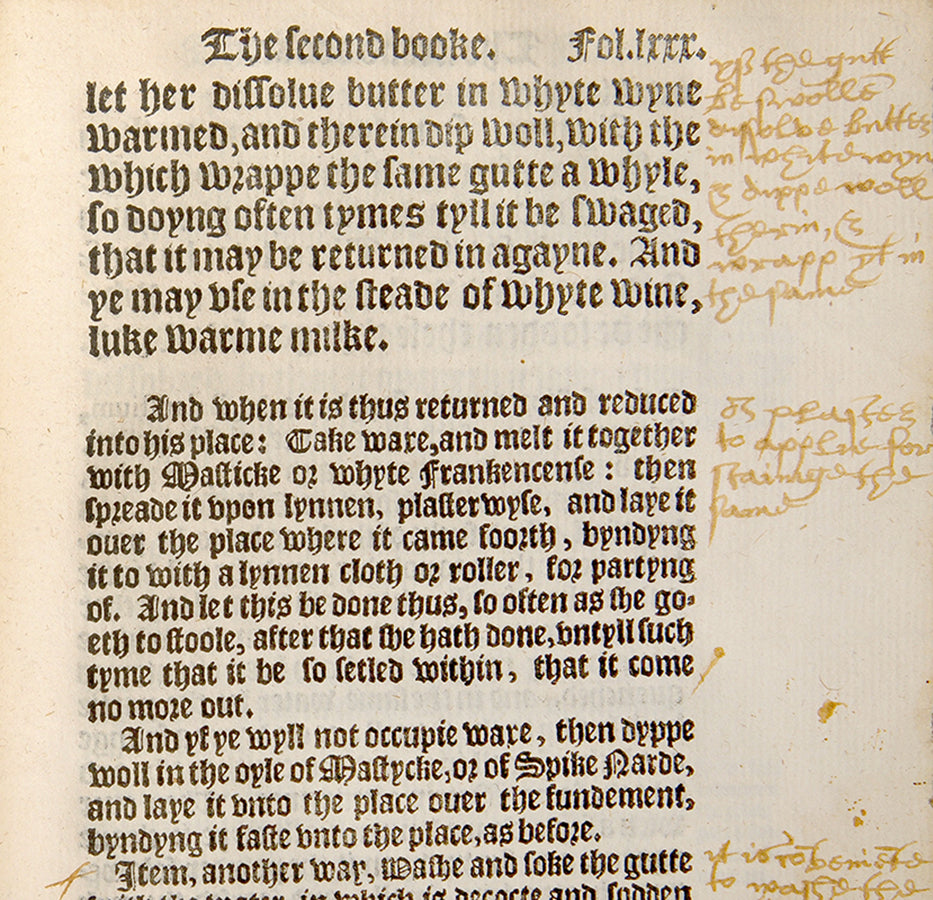 The second booke. Fol.lxxx.
let her dissolue butter in whyte wyne
warmed, and therein dip woll, with the
which wrappe the same gutte a whyle,
so doyng often tymes tyll it be swaged,
that it may be returned in agayne. And
ye may vse in the steade of whyte wine,
luke warme milke.
And when it is thus returned and reduced
into his place: Take waxe, and melt it together
with Masticke or whyte Frankencense: then
spreade it vpon lynnen, plasterwyse, and laye it
ouer the place where it came foorth, byndyng
it to with a lynnen cloth or roller, for partyng
of. And let this be done thus, so often as she go-
eth to stoole, after that she hath done, vntyll such
tyme that it be so setled within, that it come
no more out.
And yf ye wyll not occupie waxe, then dyppe
woll in the oyle of Mastycke, or of Spike Narde,
and laye it vnto the place ouer the fundement,
byndyng it faste vnto the place, as before.
Item, another way, washe and soke the gutte
with the water, in which is decocte and sodden
yf the gutt
be swolle
dissolve butter
in white wyn
& dippe woll
therin, &
wrapp yt in
the same
plaister
to applie for
the
same
it is
to washe the